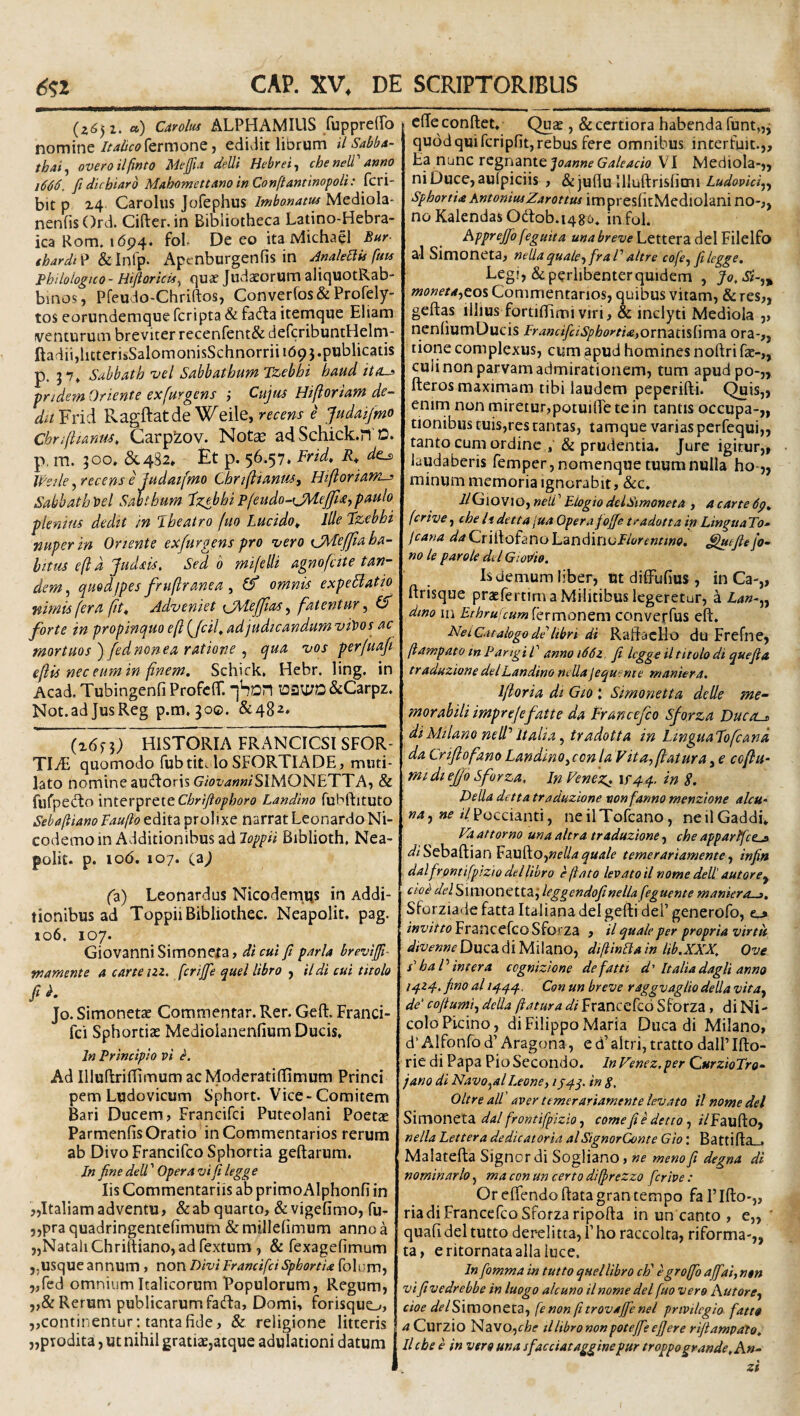 652 CAP. XV. DE SCRIPTORIBUS
(2652. a) Carolus ALPHAMIUS suppresso
nomine Italico sermone, edidit librum il Sabba-
thai, overo il finto Messia delli Hebrei, che nell' anno
1666. si dichiarò Mahomettano in Constantinopoli: scri-
bit p 24. Carolus Josephus Imbonatus Mediola-
nensis Ord. Cister. in Bibliotheca Latino-Hebra-
ica Rom. 1694. fol. De eo ita Michaël Bur-
chardi P & Insp. Apenburgensis in Analectis suis
Philologico - Historicis, quæ Judæorum aliquot Rab-
binos, Pseudo-Christos, Conversos & Prosely-
tos eorundemque scripta & facta itemque Eliam
venturum breviter recensent & describunt Helm-
stadii, litteris Salomonis Schnorrii 1693. publicatis
p. 37. Sabbath vel Sabbathum Tzebhi haud ita
pridem Oriente exsurgens ; Cujus Historiam de-
dit Frid Ragstat de Weile, recens è Judaismo
Christianus. Carpzov. Notæ ad Schick. חמ.
p. m. 300. & 482. Et p. 56.57. Frid. R. de
Weile, recens è Judaismo Christianus, Historiam
Sabbath vel Sabthum Tzebhi Pseudo-Messiæ, paulo
plenius dedit in Theatro suo Lucido. Ille Tzebhi
nuper in Oriente exsurgens pro vero Messia ha-
bitus est à Judæis. Sed ò miselli agnoscite tan-
dem, quod spes frustranea, & omnis expectatio
nimis sera sit. Adveniet Messias, fatentur, &
forte in propinquo est (scil. ad judicandum vivos ac
mortuos ) sed non ea ratione , qua vos persuasi
estis nec eum in finem. Schick. Hebr. ling. in
Acad. Tubingensi Profess. המלך משפט & Carpz.
Not. ad Jus Reg p.m. 300. & 482.
(2653) HISTORIA FRANCICSI SFOR-
TIÆ quomodo sub tit. lo SFORTIADE, muti-
lato nomine auctoris Giovanni SIMONETTA, &
suspecto interprete Christophoro Landino substituto
Sebastiano Fausto edita prolixe narrat Leonardo Ni-
codemo in Additionibus ad Toppii Biblioth. Nea-
polit. p. 106. 107. (a)
(a) Leonardus Nicodemus in Addi-
tionibus ad Toppii Bibliothec. Neapolit. pag.
106. 107.
Giovanni Simoneta, di cui si parla brevissi-
mamente a carte 122. scrisse quel libro , il di cui titolo
si è.
Jo. Simonetæ Commentar. Rer. Gest. Franci-
sci Sphortiæ Mediolanensium Ducis.
In Principio vi è.
Ad Illustrissimum ac Moderatissimum Princi
pem Ludovicum Sphort. Vice-Comitem
Bari Ducem, Francisci Puteolani Poetæ
Parmensis Oratio in Commentarios rerum
ab Divo Francisco Sphortia gestarum.
In fine dell' Opera vi si legge
Iis Commentariis ab primo Alphonsi in
„Italiam adventu, & ab quarto, & vigesimo, su-
„pra quadringentesimum & millesimum anno à
„Natali Christiano, ad sextum , & sexagesimum
„usque annum , non Divi Francisci Sphortiæ solum,
„sed omnium Italicorum Populorum, Regum,
„& Rerum publicarum facta, Domi, forisque,
„continentur: tanta fide, & religione litteris
„prodita, ut nihil gratiæ, atque adulationi datum
esse constet. Quæ , & certiora habenda sunt,„
quòd qui scripsit, rebus fere omnibus interfuit.„
Ea nunc regnante Joanne Galeacio VI Mediola-„
ni Duce, auspiciis , & jussu Illustrissimi Ludovici„
Sphortiæ Antonius Zarottus impressit Mediolani no-„
no Kalendas Octob. 1480. in fol.
Appresso seguita una breve Lettera del Filelfo
al Simoneta, nella quale, fra l' altre cose, si legge.
Legi, & perlibenter quidem , Jo. Si-„
moneta, eos Commentarios, quibus vitam, & res„
gestas illius fortissimi viri, & inclyti Mediola „
nensium Ducis Francisci Sphortiæ, ornatissima ora-„
tione complexus, cum apud homines nostri sæ-„
culi non parvam admirationem, tum apud po-„
steros maximam tibi laudem peperisti. Quis„
enim non miretur, potuisse te in tantis occupa-„
tionibus tuis, res tantas, tamque varias persequi„
tanto cum ordine , & prudentia. Jure igitur„
laudaberis semper, nomenque tuum nulla ho-„
minum memoria ignorabit, &c.
Il Giovio, nell' Elogio del Simoneta , a carte 69.
scrive, che la detta sua Opera fosse tradotta in Lingua To-
scana da Cristofano Landino Florentino. Queste so-
no le parole del Giovio.
Is demum liber, ut diffusius, in Ca-„
strisque præsertim a Militibus legeretur, à Lan-„
dino in Ethruscum sermonem conversus est.
Nel Catalogo de' libri di Raffaello du Fresne,
stampato in Parigi l' anno 1662 si legge il titolo di questa
traduzione del Landino nella seguente maniera.
Istoria di Gio: Simonetta delle me-
morabili imprese fatte da Francesco Sforza Duca
di Milano nell' Italia, tradotta in Lingua Toscana
da Cristofano Landino, con la Vita, statura, e costu-
mi di esso Sforza. In Venez. 1544. in 8.
Della detta traduzione non fanno menzione alcu-
na, ne il Poccianti, ne il Tofcano, ne il Gaddi.
Va attorno una altra traduzione, che apparisce
di Sebastian Fausto, nella quale temerariamente, insin
dal frontispizio del libro è stato levato il nome dell' autore,
cioè del Simonetta; leggendosi nella seguente maniera.
Sforziade fatta Italiana del gesti del' generoso, e
invitto Francesco Sforza , il quale per propria virtù
divenne Duca di Milano, distinta in lib. XXX. Ove
s' ha l' intera cognizione de fatti d' Italia dagli anno
1424. fino al 1444. Con un breve raggvaglio della vita,
de' costumi, della statura di Francesco Sforza, di Ni-
colo Picino, di Filippo Maria Duca di Milano,
d' Alfonso d' Aragona, e d' altri, tratto dall' Isto-
rie di Papa Pio Secondo. In Venez. per Curzio Tro-
jano di Navo, al Leone, 1543. in 8.
Oltre all' aver temerariamente levato il nome del
Simoneta dal frontispizio, come si è detto , il Fausto,
nella Lettera dedicatoria al Signor Conte Gio: Battista
Malatesta Signor di Sogliano, ne meno si degna di
nominarlo, ma con un certo disprezzo scrive:
Or essendo stata gran tempo fa l' Isto-„
ria di Francesco Sforza riposta in un canto , e„
quasi del tutto derelitta, l' ho raccolta, riforma-„
ta, e ritornata alla luce.
In somma in tutto quel libro ch' è grosso assai, non
vi si vedrebbe in luogo alcuno il nome del suo vero Autore,
cioe del Simoneta, se non si trovasse nel privilegio fatto
a Curzio Navo, che il libro non potesse essere ristampato.
Il che è in vero una sfacciataggine pur troppo grande. An-
zi